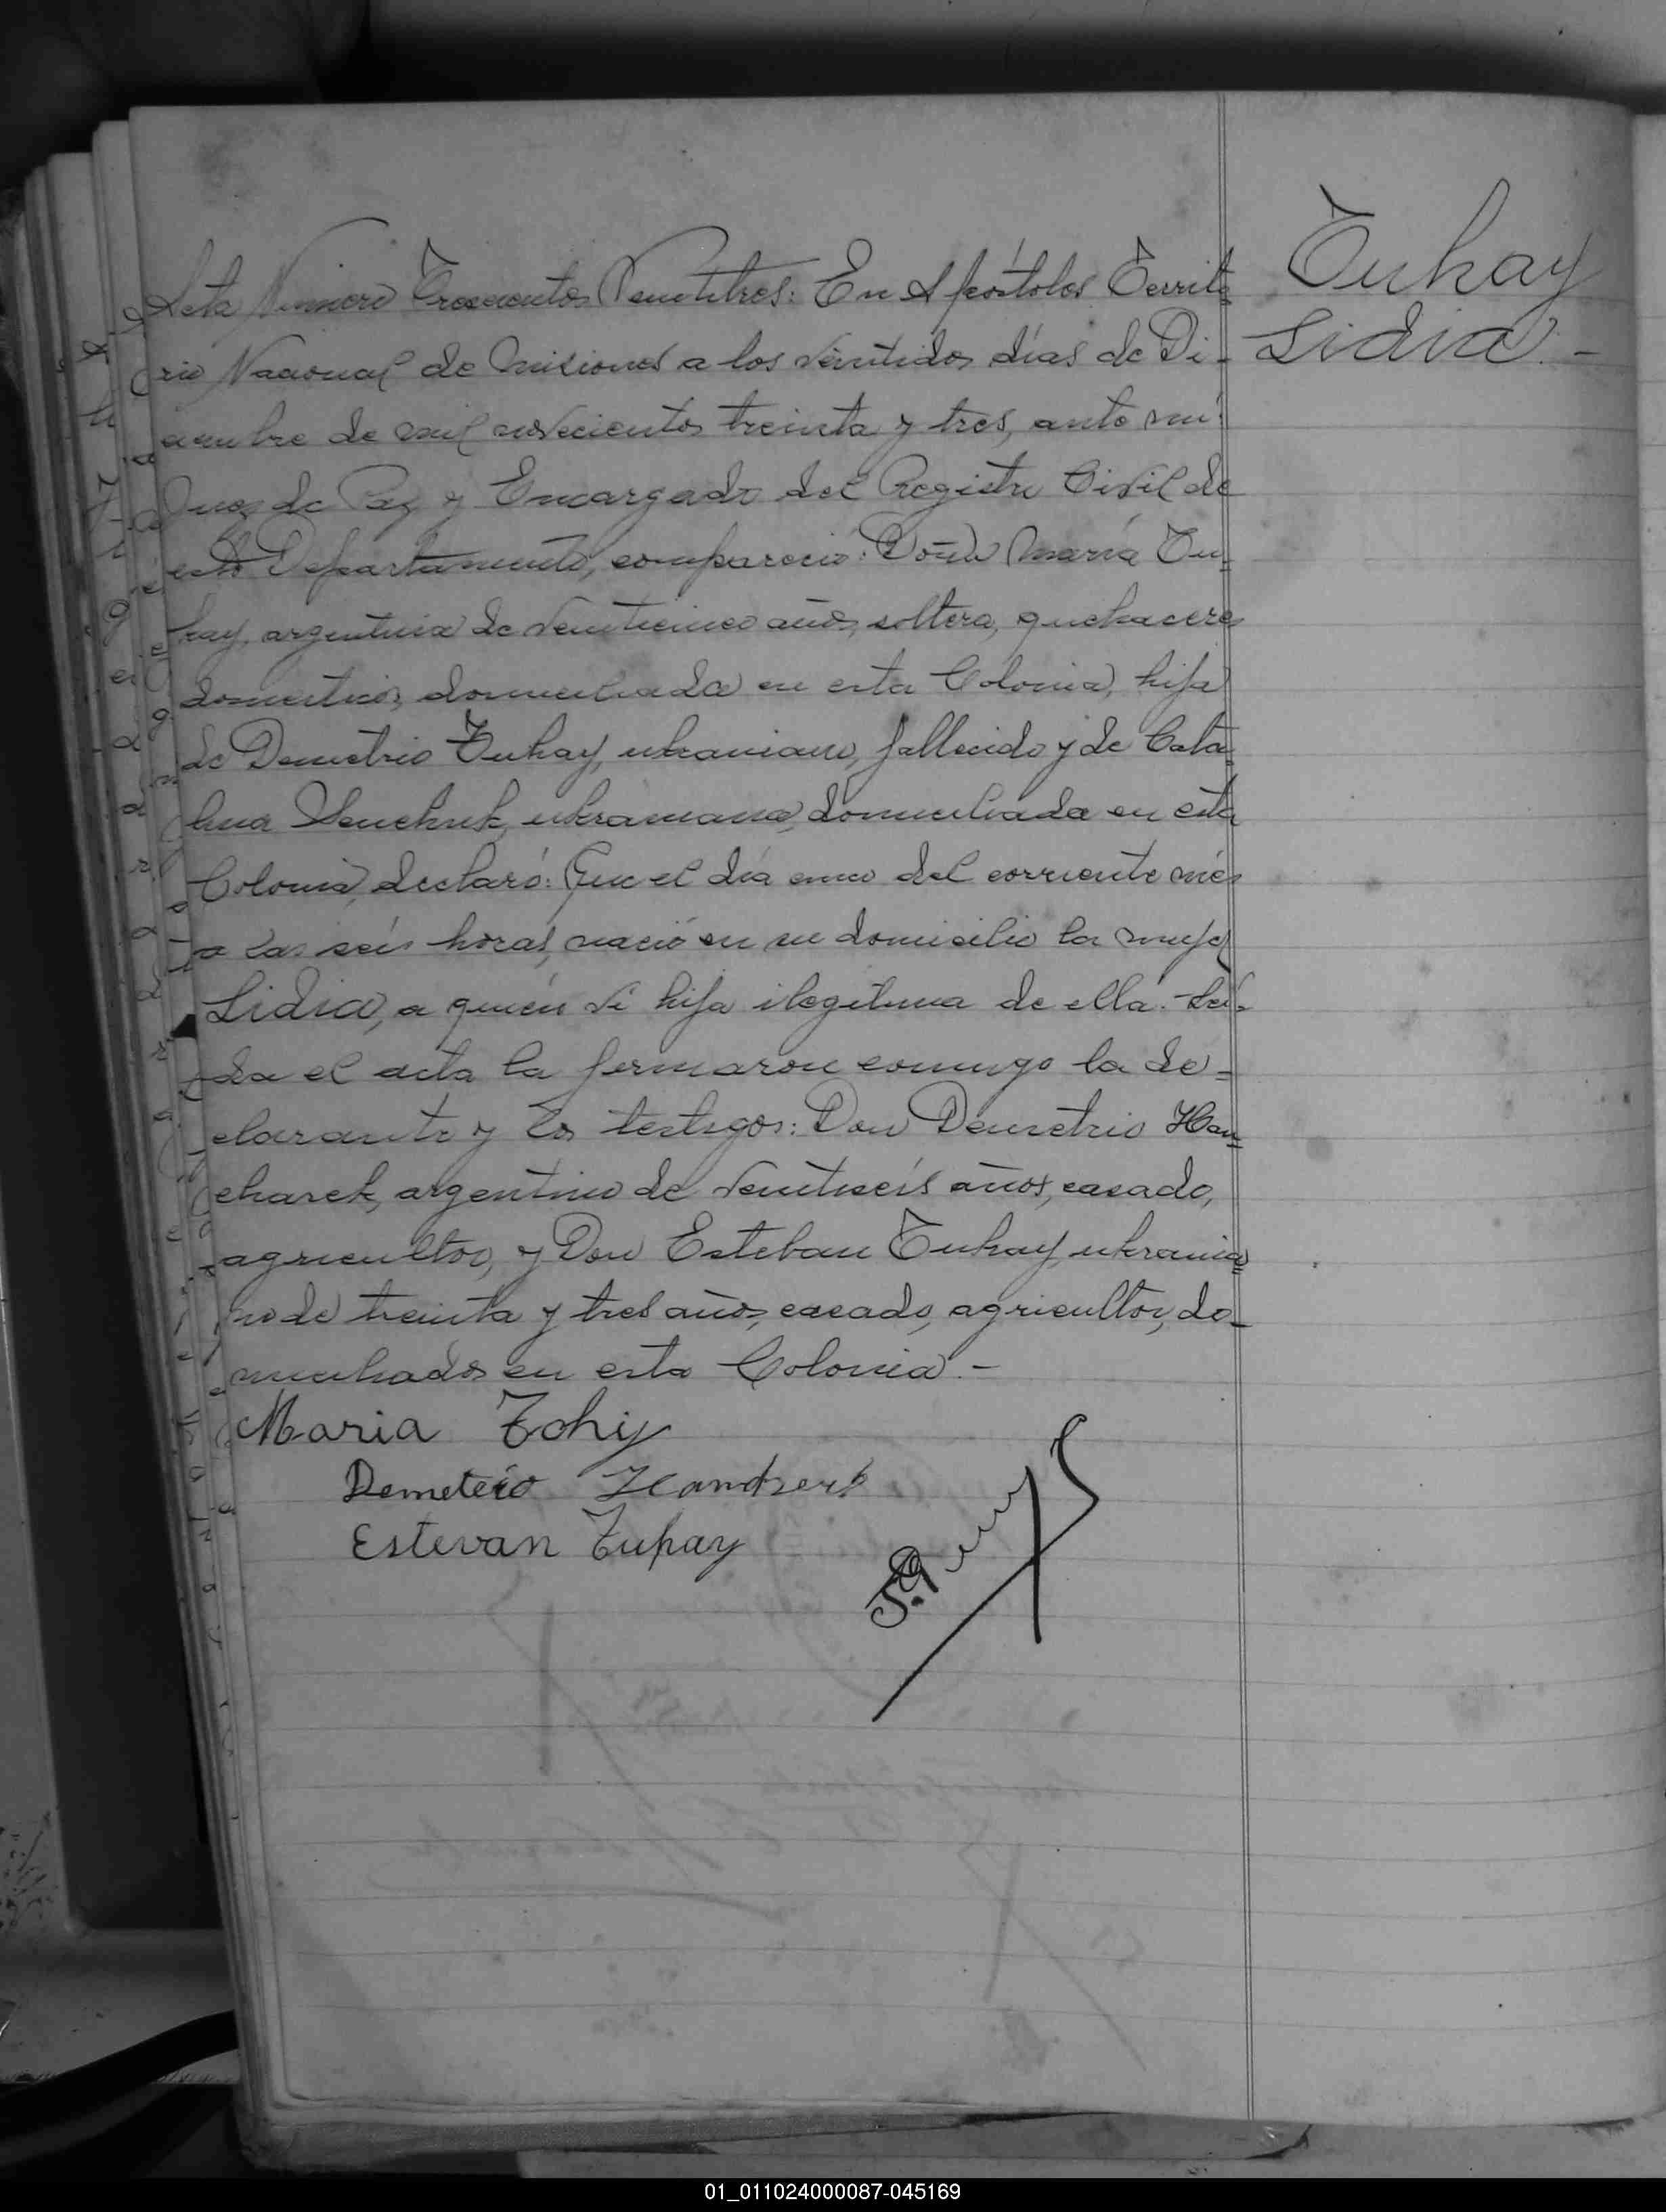 Tuhay
Lidia.-
Acta Número Trescientos Veintitres: En Apóstoles Territo=
rio Nacional de Misiones a los veintidos días de Di-
ciembre de mil novecientos treinta y tres, ante mí:
Juez de Paz y Encargado del Registro Civil de
este Departamento, compareció: Doña María Tu=
hay, argentina de veinticinco años, soltera, quehaceres
domesticos, domiciliada en esta Colonia, hija
de Demetrio Tuhay, ukraniano, fallecido y de Cata=
lina Senchuk, ukraniana, domiciliada en esta
Colonia, declaró: Que el día cinco del corriente més
a las seis horas, nació en su domicilio la mujer
Lidia, a quién vi hija ilegitima de ella. Leí=
da el acta la firmaron conmigo la de=
clarante y los testigos: Don Demetrio Han=
charek, argentino de veintiseis años, casado,
agricultor, y Don Esteban Tuhay, ukrania=
no de treinta y tres años, casado, agricultor, do-
miciliados en esta Colonia.-
Maria Tohiy
Demeterio
Estevan Tuhay
01_011024000087-045169